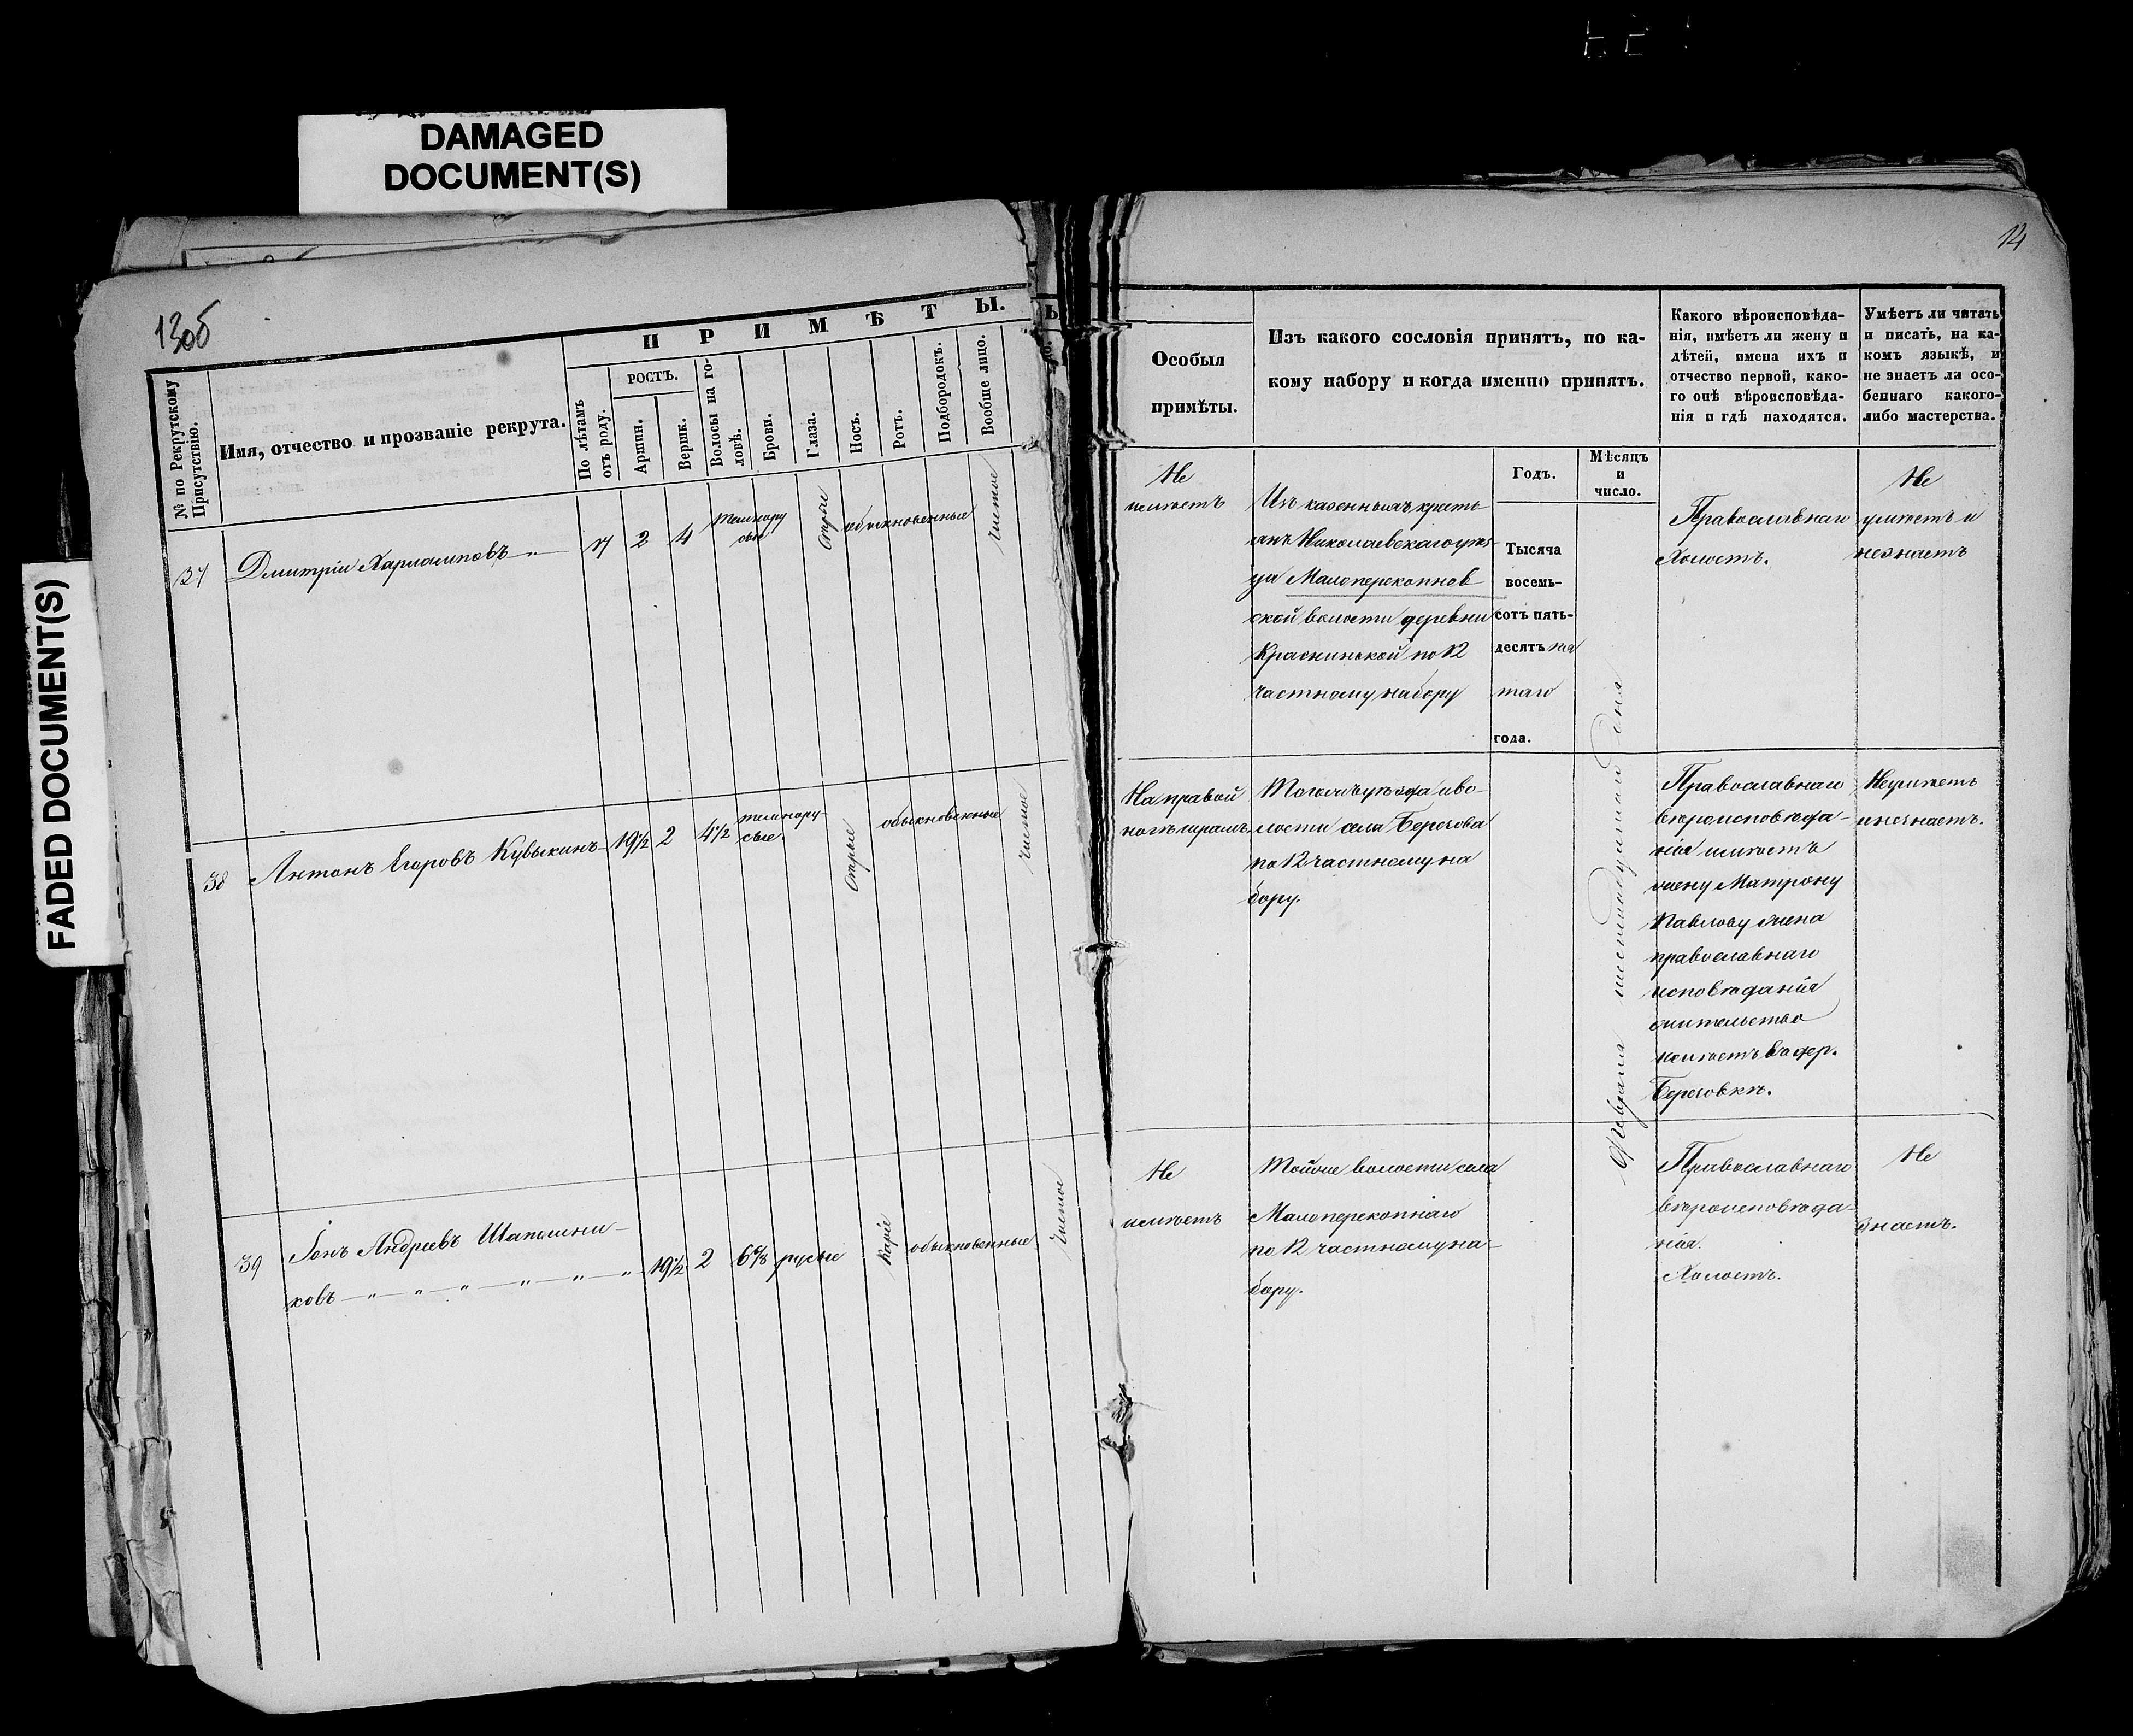 DAMAGED
DOCUMENT(S)
FADED DOCUMENT(S)
13об
№ по Рекрутскому
Присутствію.
Имя, отчество и прозваніе рекрута.
ПРИМѢТЫ.
По лѣтамъ
отъ роду.
РОСТЪ.
Аршин.
Вершк.
Волосы на го-
ловѣ.
Брови.
Глаза.
Носъ.
Ротъ.
Подбородокъ.
Вообще лицо.
37
Дмитрій Харламповъ
2
4
темнору
сыя
Сѣрые
обыкновенные
Чистое
38
Антонъ Егоровъ Кувыкинъ
19½
2
4½
темнору-
сые
Сѣрые
обыкновенные
Чистое
39
Іонъ Андреевъ Шапошни-
ковъ
19½
2
6⅝
русые
Каріе
обыкновенные
Чистое
14
Особыя
примѣты.
Изъ какого сословія принятъ, по ка-
кому набору и когда именно принятъ.
Какого вѣроисповѣда-
нія, имѣетъ ли жену и
дѣтей, имена ихъ и
отчество первой, како-
го онѣ вѣроисповѣда-
нія и гдѣ находятся.
Умѣетъ ли читать
и писать, на ка-
комъ языкѣ, и
не знаетъ ли осо-
беннаго какого-
либо мастерства.
Годъ.
Мѣсяцъ
и
число.
Не
имѣетъ
Изъ казенныхъ кресть
янъ Николаевскаго уѣз-
да Малоперекопнов
ской волости деревни
Красинькой по 12
частному набору
Тысяча
восемь-
сотъ пять-
десятъ пя
таго
года.
Февраля шестнадцатаго дня
Православнаго
Холостъ.
Не
умѣетъ и
незнаетъ
На правой
ногѣ шрамъ.
Тогожъ уѣзда иво-
лости села Березова
по 12 частному на
бору.
Православнаго
вѣроисповѣда-
нія имѣетъ
жену Матрону
Павлову жена
православнаго
исповѣданія
жительство
имѣетъ въ дер.
Березовкѣ.
Неумѣетъ
инезнаетъ.
Не
имѣетъ
Тойже волости села
Малоперекопнаго
по 12 частному на-
бору.
Православнаго
вѣроисповѣда-
нія.
Холостъ.
Не
знаетъ.